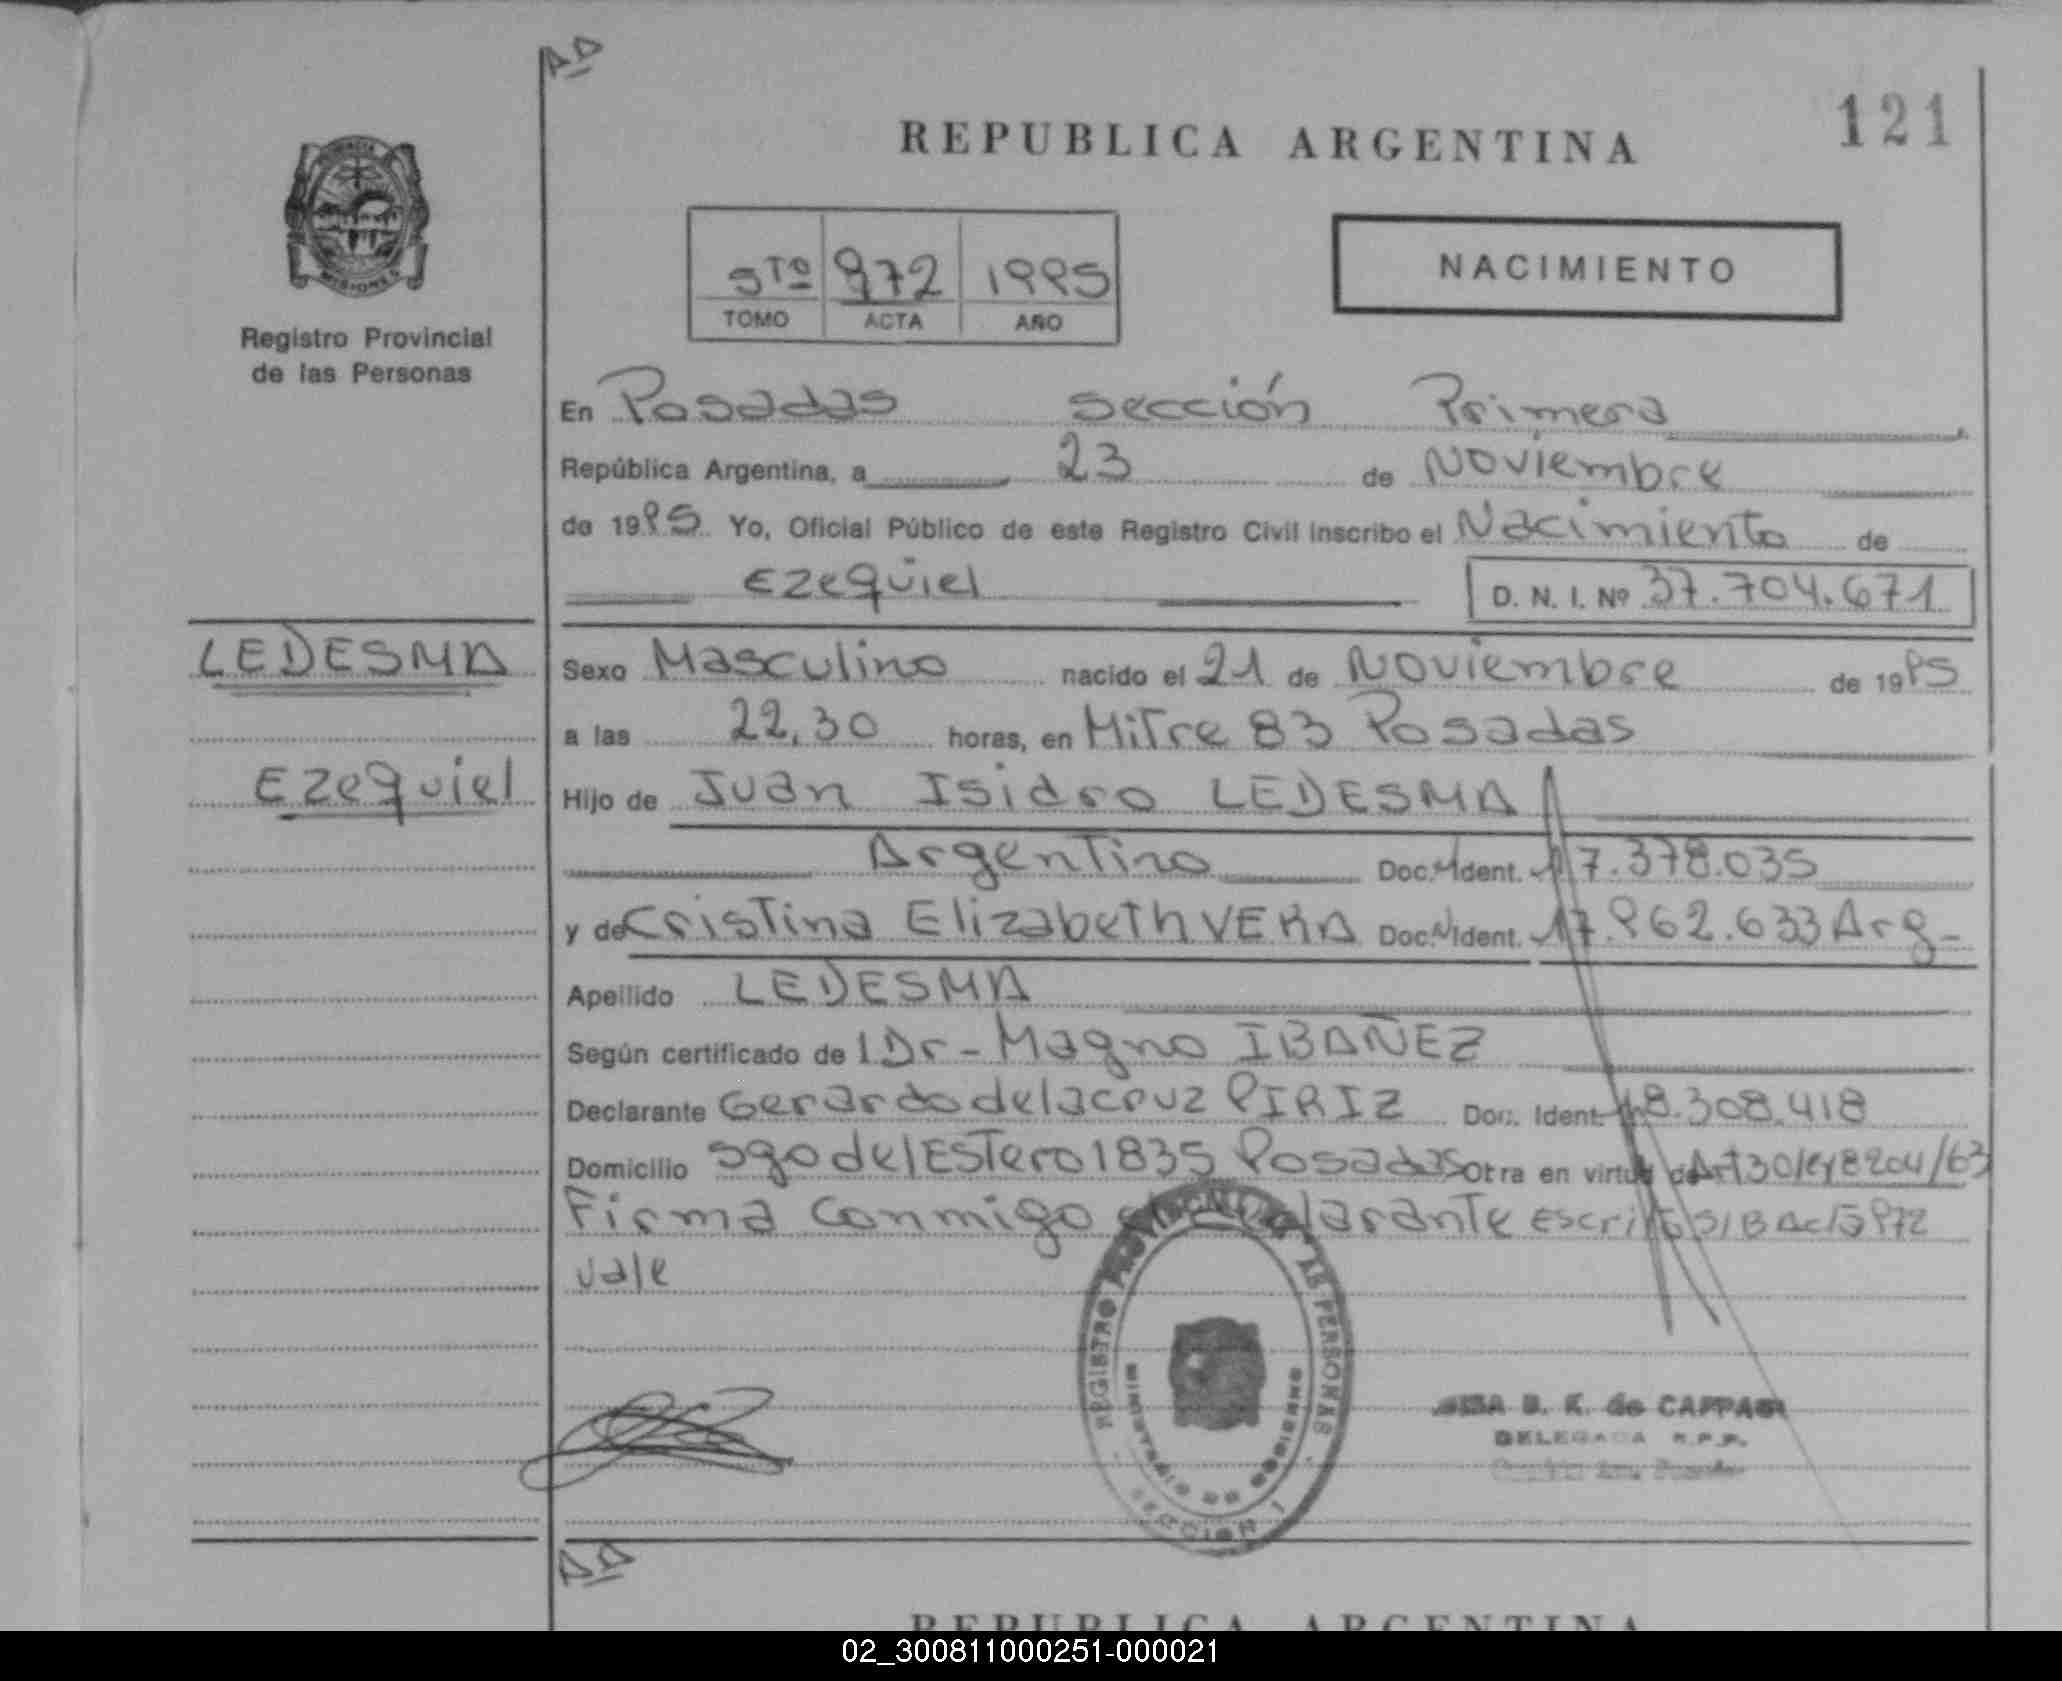 AD
121
REPUBLICA ARGENTINA
5TO 972 1995
TOMO ACTA AÑO
NACIMIENTO
MISIONES
Registro Provincial
de las Personas
En Posadas sección Primera
República Argentina, a 23 de Noviembre
de 1995 Yo, Oficial Público de este Registro Civil inscribo el Nacimiento de
Ezequiel D. N. I. Nº 37.704.671
LEDESMA
Sexo Masculino nacido el 21 de Noviembre de 1995
a las 22,30 horas, en Mitre 83 Posadas
Ezequiel
Hijo de Juan Isidro LEDESMA
Argentino Doc. Ident. 17.378.035
y de Cristina Elizabeth VERA Doc. Ident. 17.962.633 Arg-
Apellido LEDESMA
Según certificado de l Dr- Magno IBAÑEZ
Declarante Gerardo de la cruz PIRIZ Doc. Ident. 18.308.418
Domicilio Sgo del Estero 1835 Posadas Otra en virtud de Art 30 ley 8204/63
Firma conmigo el declarante escrito S/B Acta 972
vale
REGISTRO PROVINCIAL DE LAS PERSONAS
MINISTERIO DE GOBIERNO
SECCION 1
B. K. de CAPPA
DELEGADA R.P.P.
AD
REPUBLICA ARGENTINA
02_300811000251-000021